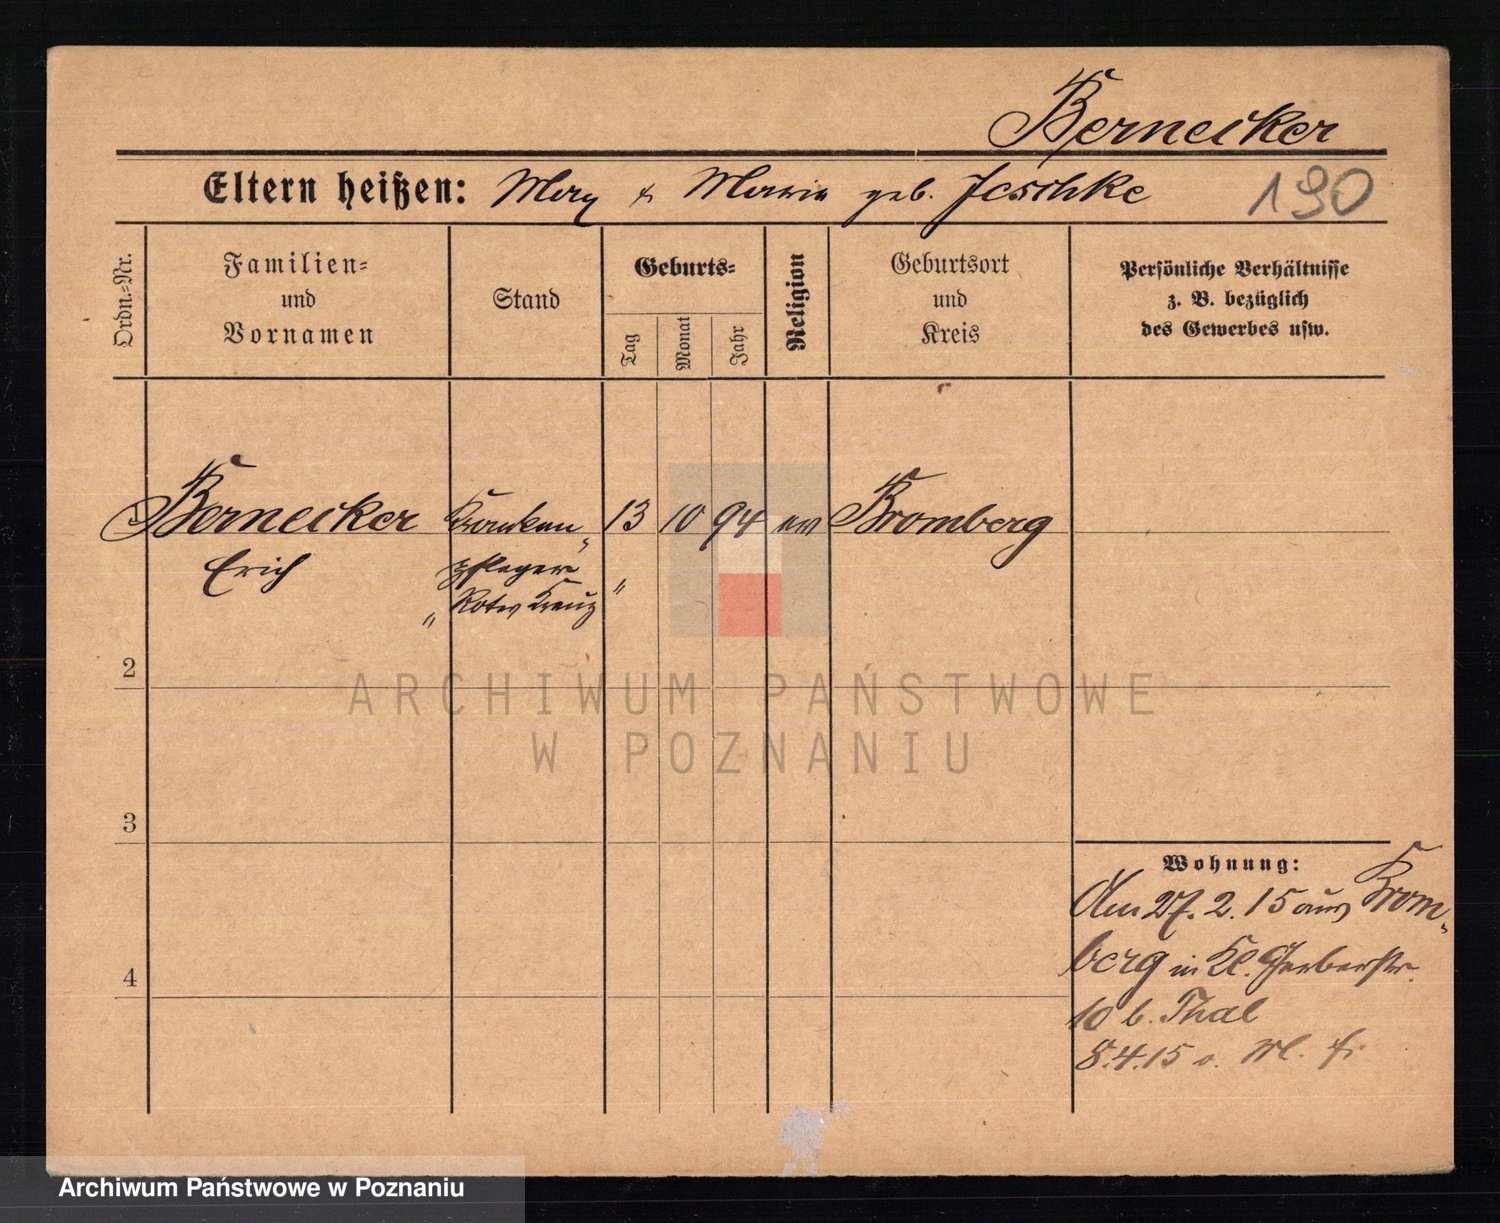 Bernecker
Eltern heißen: Max & Maria geb. Jeschke 190
Ordn.-Nr.
Familien-
und
Vornamen
Stand
Geburts-
Tag
Monat
Jahr
Religion
Geburtsort
und
Kreis
Persönliche Verhältnisse
z. B. bezüglich
des Gewerbes usw.
Bernecker Kranken- 13 10 94 ev Bromberg
Erich pfleger
"Rotes Kreuz"
2
3
4
Wohnung:
Am 27. 2. 15 aus Brom-
berg in Kl. Gerberstr.
10 b. Thal
8.4.15
ARCHIWUM PAŃSTWOWE
W POZNANIU
Archiwum Państwowe w Poznaniu